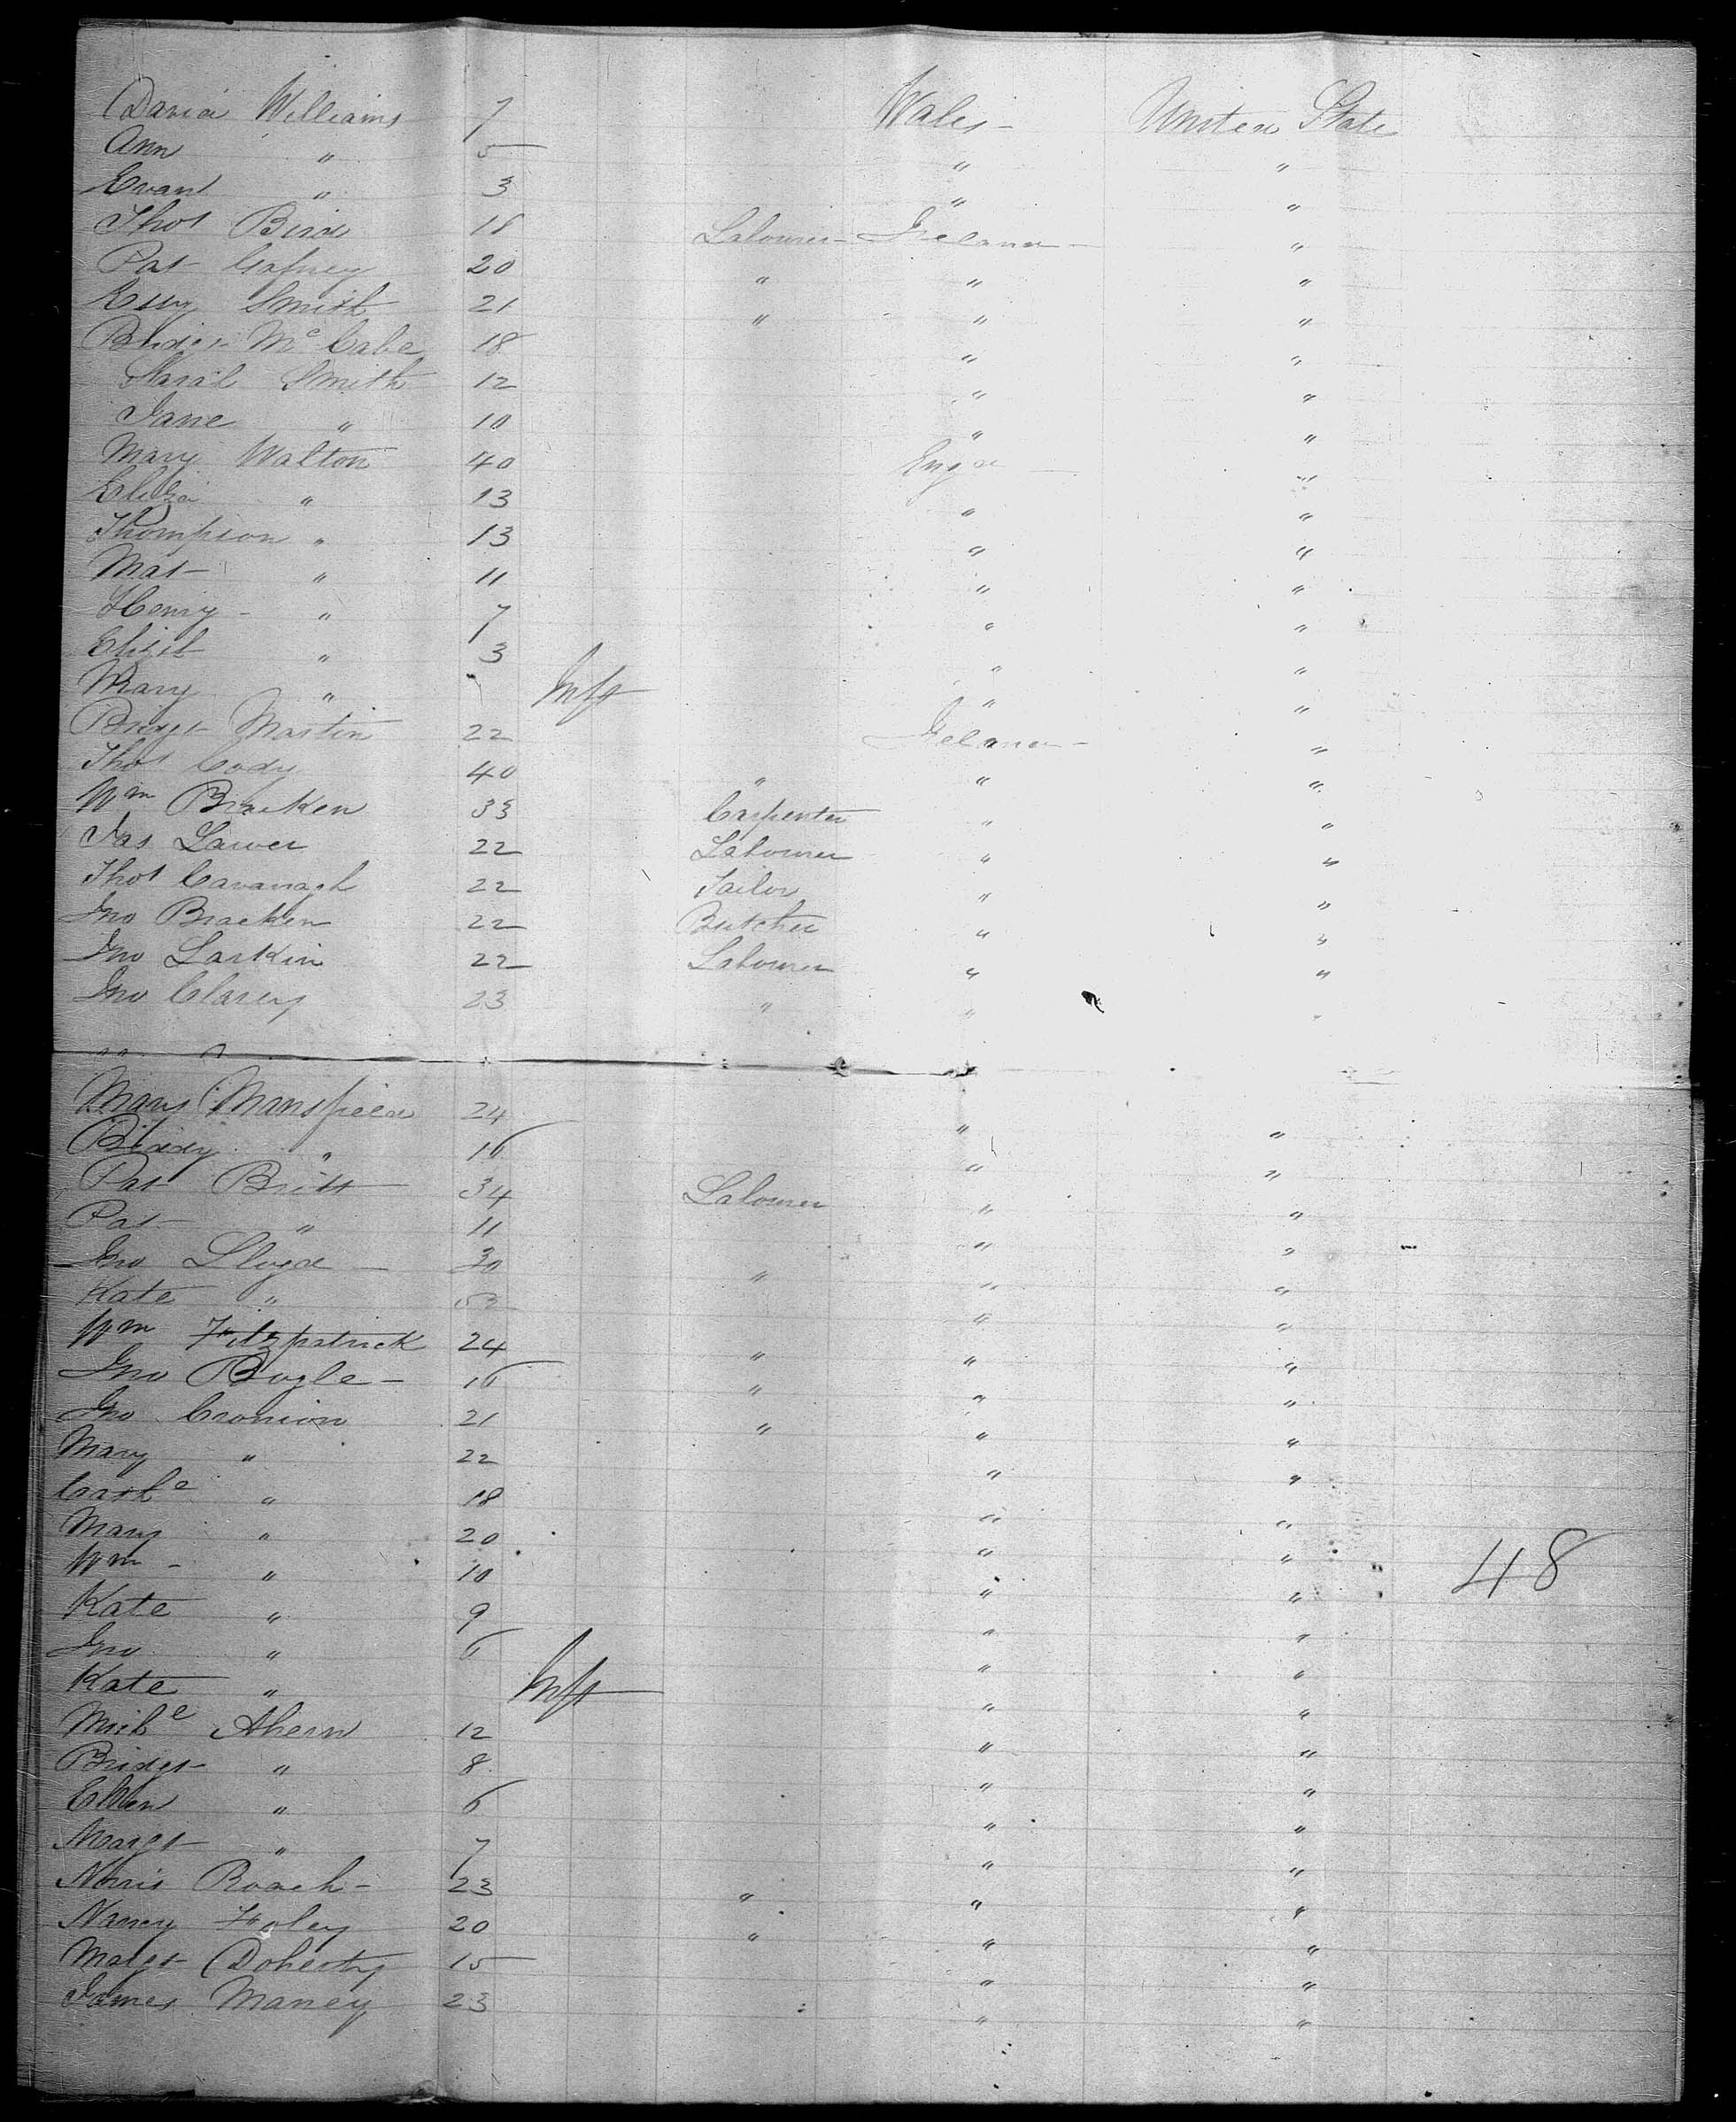 David Williams 7 Wales - United State
Ann " 5 " "
Evan " 3 " "
Thos Bird 18 Labourer - Ireland - "
Pat Gafney 20 " " "
Essy Smith 21 " " "
Bridgt McCabe 18 " "
Sarah Smith 12 " "
Jane " 10 " "
Mary Walton 40 Engd - "
Eliza " 13 " "
Thompson " 13 " "
Mat " 11 " "
Henry - " 7 " "
Elizth " 3 " "
Mary " Inft " "
Bridgt Martin 22 Ireland - "
Thos Cody 40 " " "
Wm Bracken 33 Carpenter " "
Jas Lawer 22 Labourer " "
Thos Cavanagh 22 Tailor " "
Jno Bracken 22 Butcher " "
Jno Larkin 22 Labourer " "
Jno Clarey 23 " " "
Mary Mansfield 24 " "
Biddy " 16 " "
Pat Britt 34 Labourer " "
Pat " 11 " "
Jno Lloyd - 30 " " "
Kate " " "
Wm Fitzpatrick 24 " " "
Jno Bogle - 16 " " "
Jno Cronion 21 " " "
Mary " 22 " "
Cathe " 18 " "
Mary " 20 " "
Wm - " 10 " "
48
Kate " 9 " "
Jno " 6 " "
Kate " Inft " "
Michl Ahern 12 " "
Bridgt " 8 " "
Ellen " 6 " "
Margt " 7 " "
Norris Roach - 23 " " "
Nancy Foley 20 " " "
Margt Doherty 15 " "
James Maney 23 " "